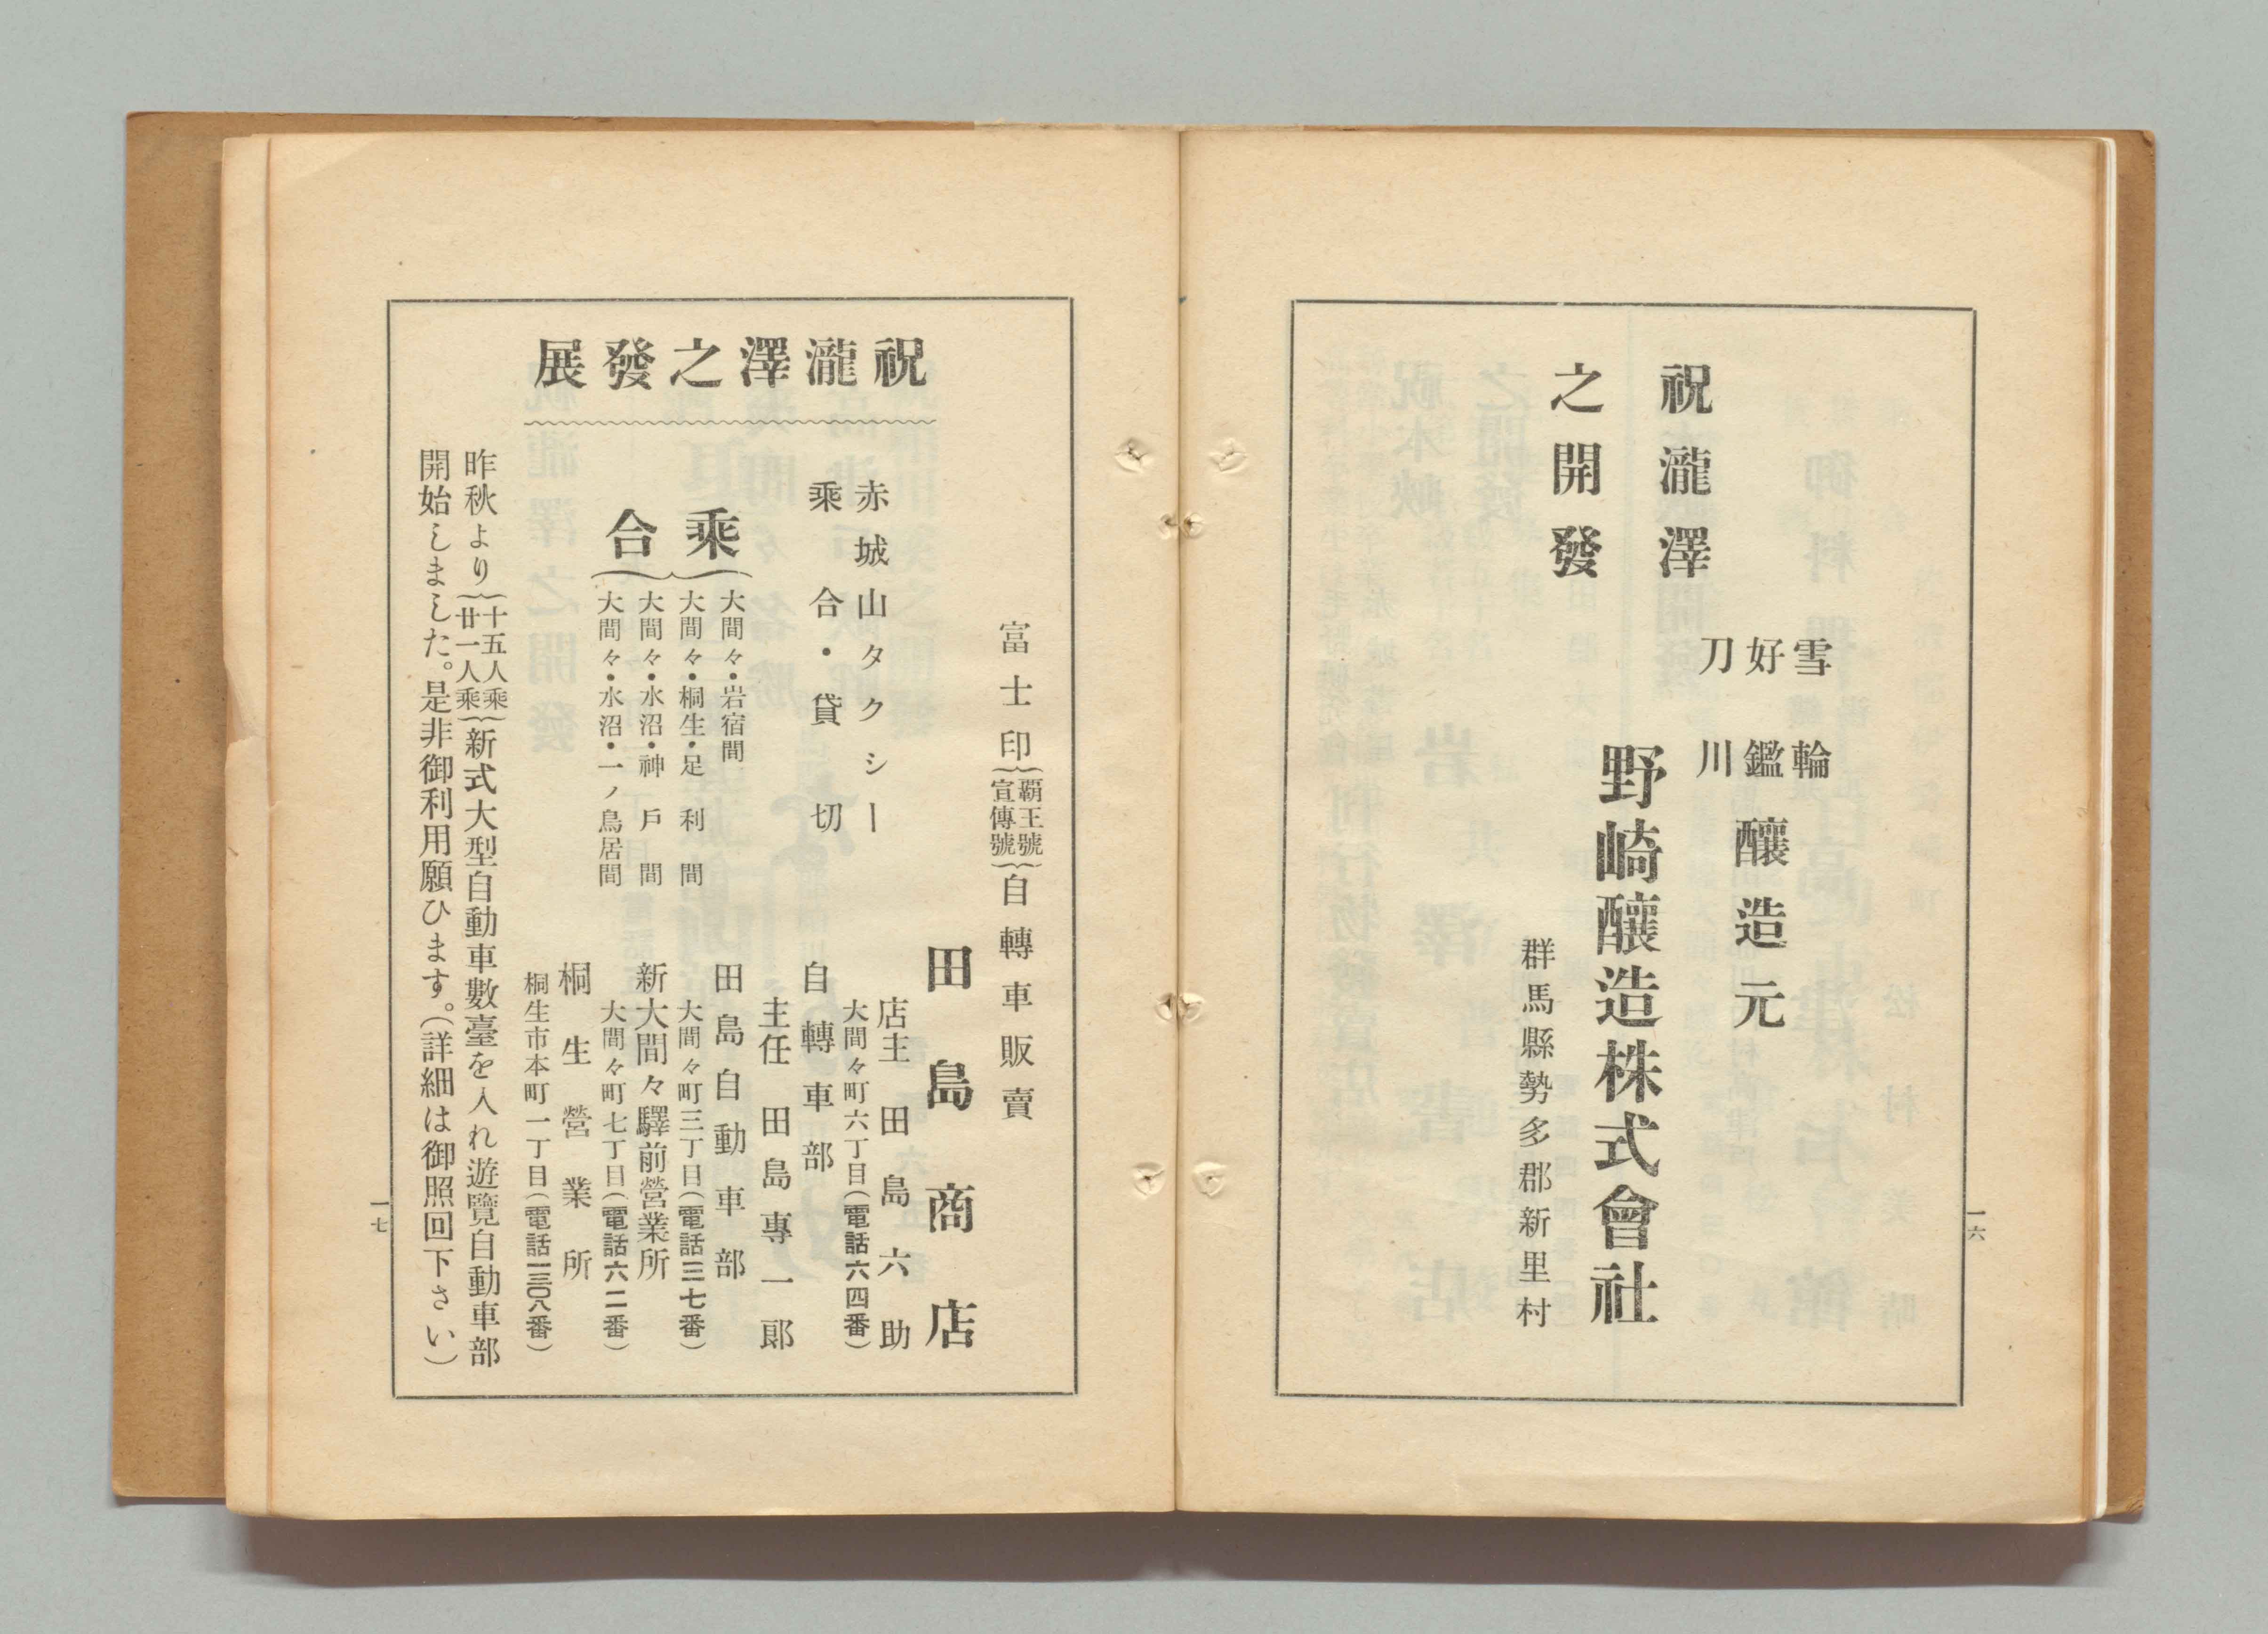 祝瀧澤
之開發
雪輪
好鑑
刀川
釀造元
野崎釀造株式會社
群馬縣勢多郡新里村
一六
祝瀧澤之發展
富士印{覇王號 宣傳號}自轉車販賣
田島商店
店主 田島六助
大間々町六丁目(電話六四番)
赤城山タクシー
乘合・貸切
自轉車部
主任 田島專一郎
田島自動車部
大間々町三丁目(電話三七番)
新大間々驛前營業所
大間々町七丁目(電話六二番)
桐生營業所
桐生市本町一丁目(電話一三〇八番)
乘合
大間々・岩宿間
大間々・桐生・足利間
大間々・水沼・神戶間
大間々・水沼・一ノ鳥居間
昨秋より{十五人乘 廿一人乘}新式大型自動車數臺を入れ遊覽自動車部
開始しました。是非御利用願ひます。(詳細は御照回下さい)
一七